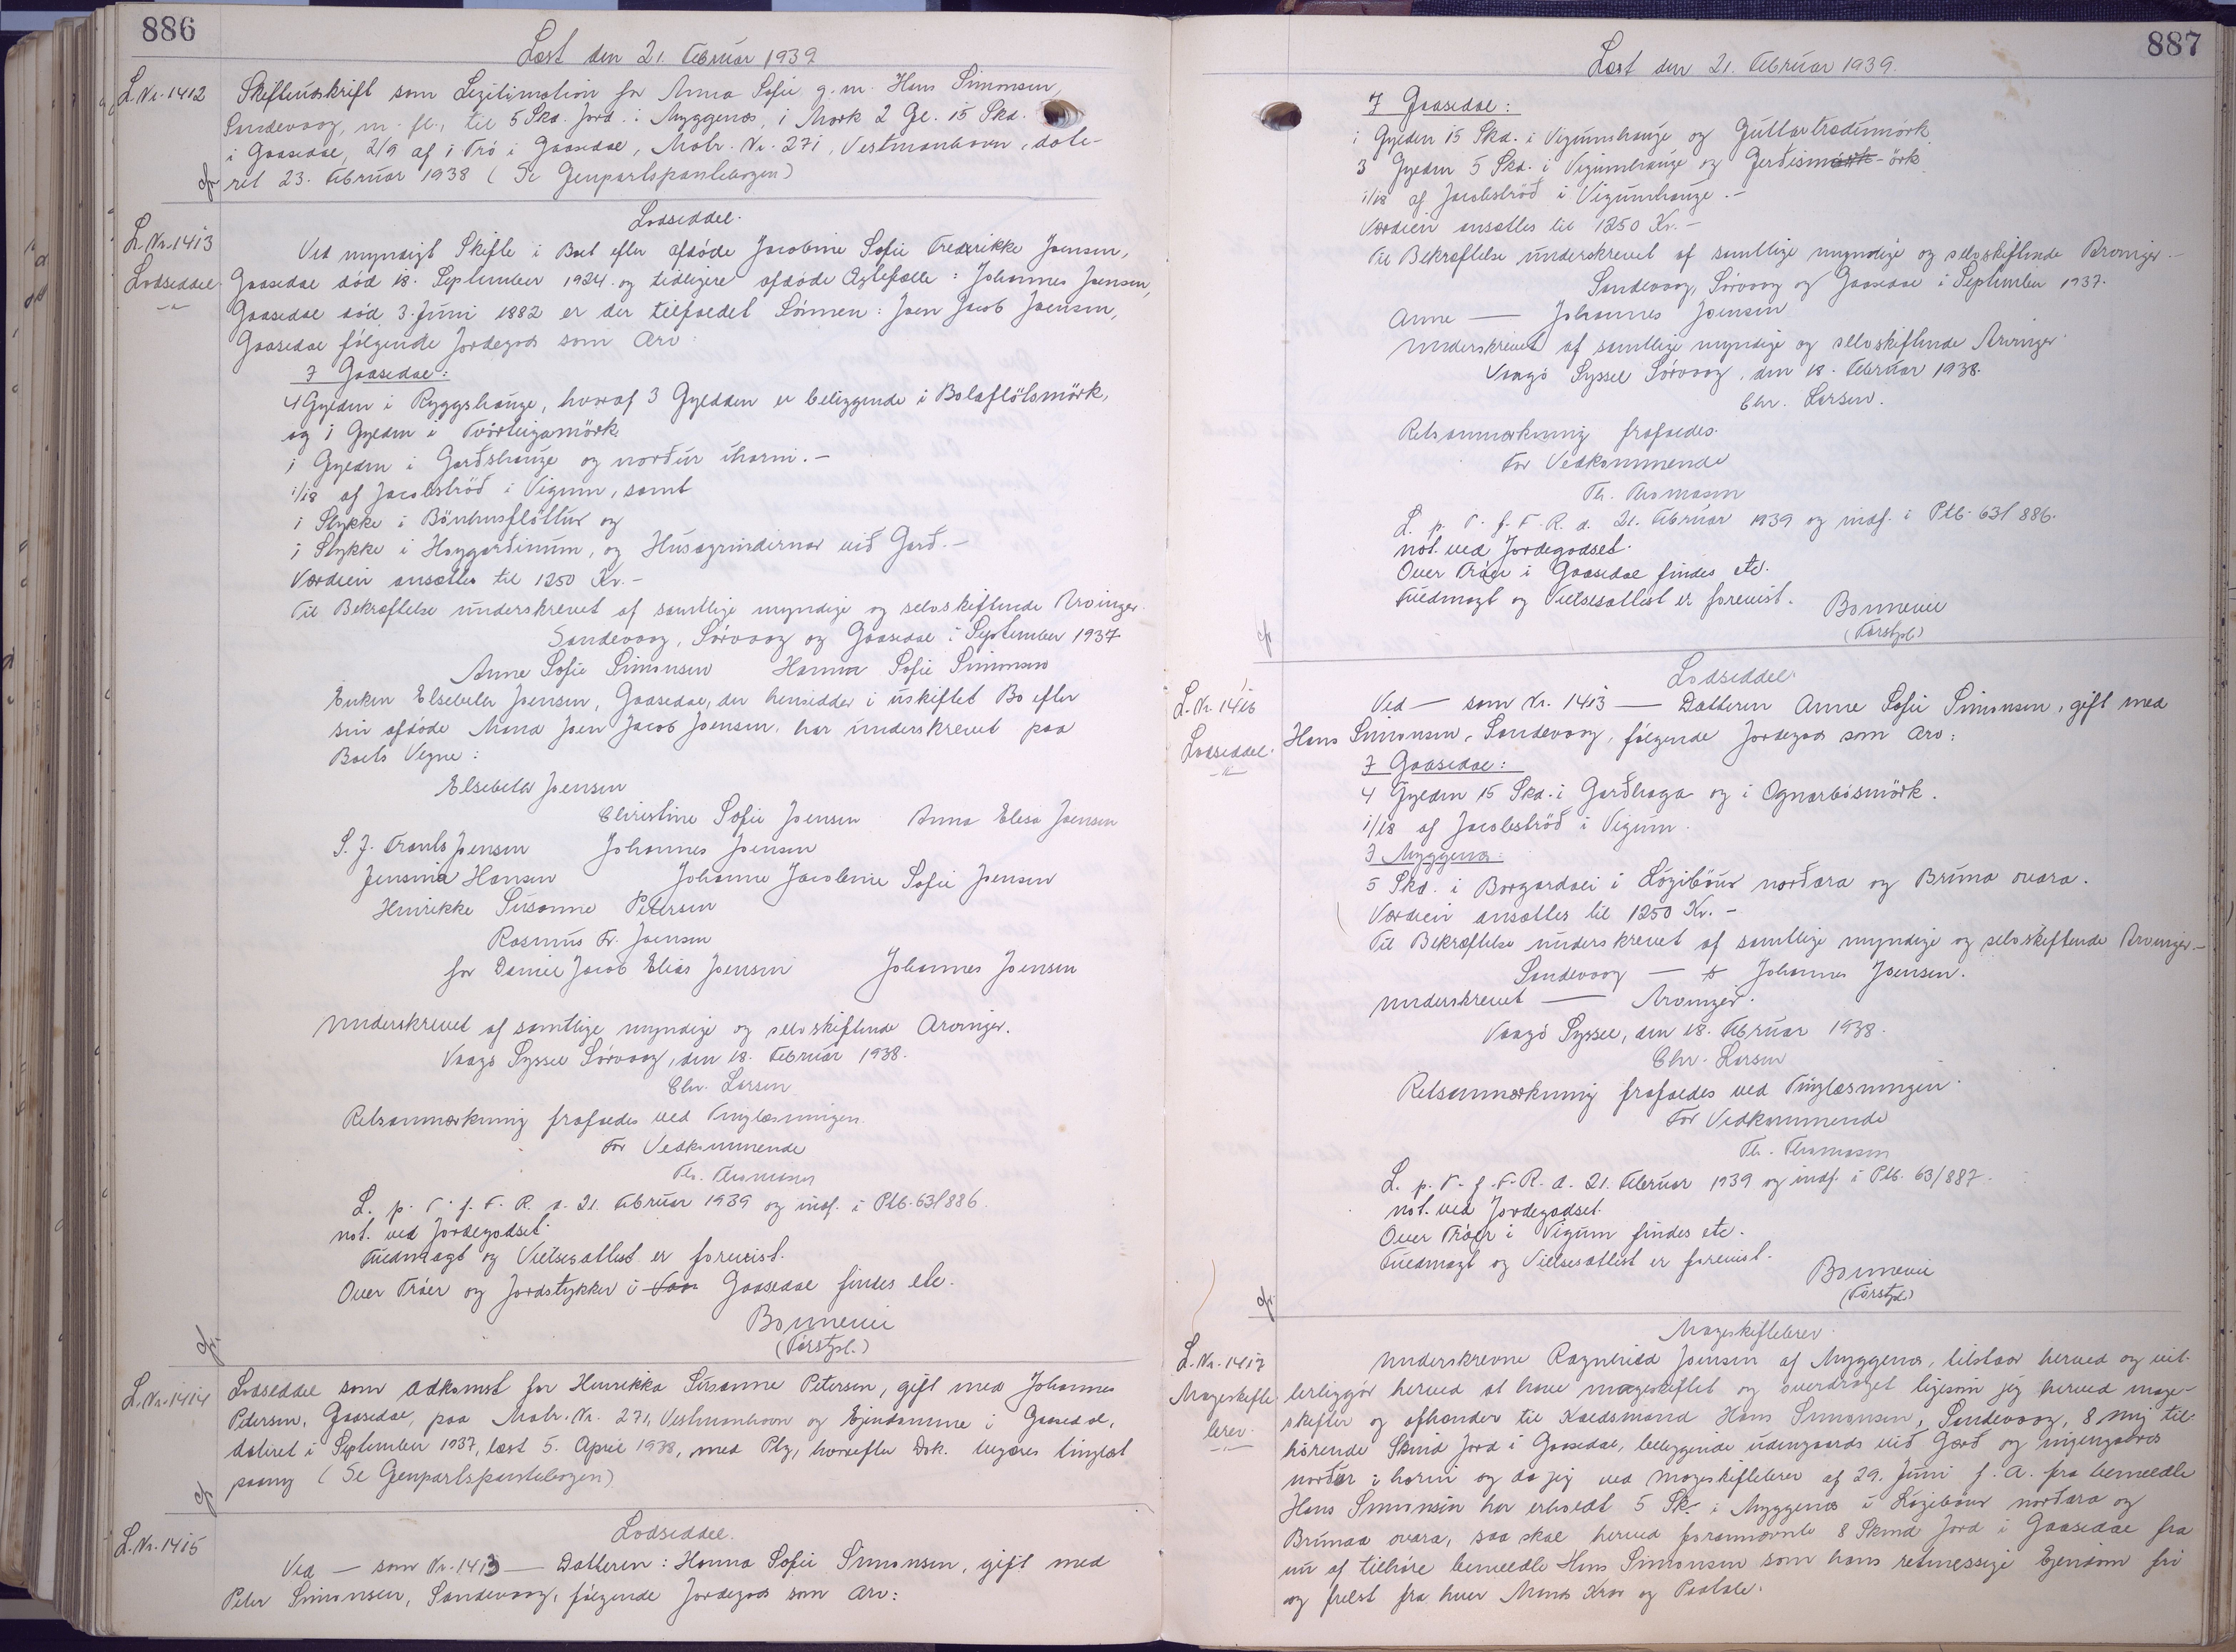 886
Læst den 21. Februar 1939
L. Nr. 1412
Skifteudskrift som Legitimation for Anna Sofie g. m. Hans Simonsen,
Sandevaag, m. fl., til 5 Skd. Jord i Myggenæs, 1 Mørk 2 Gl. 15 Skd.
i Gaasedal, 2/9 af 1 Trö i Gaasedal, Matr. Nr. 271, Vestmanhavn, date-
ret 23. Februar 1938 (Se Genpartspantebogen)
L. Nr. 1413
Lodseddel
Lodseddel.
Ved myndigt Skifte i Boet efter afdöde Jacobine Sofie Frederikke Joensen,
Gaasedal död 18. September 1924 og tidligere afdöde Ægtefælle: Johannes Joensen,
Gaasedal död 3. Juni 1882 er der tilfaldet Sönnen: Joen Jacob Joensen,
Gaasedal fölgende Jordegods som Arv:
I Gaasedal:
4 Gylden i Ryggshauge, hvoraf 3 Gyldden er beliggende i Bolaflötsmörk,
og 1 Gylden i Tvörteigamörk.
1 Gylden i Garðshauge og norður iharni. -
1/18 af Jacobströð i Vigum, samt
1 Stykke i Bönhusflöttur og
1 Stykke i Hoygarðinum, og Husagrindirnar við Garð. -
Værdien ansættes til 1250 Kr. -
Til Bekræftelse underskrevet af samtlige myndige og selvskiftende Arvinger.
Sandevaag, Sörvaag og Gaasedal i September 1937
Anne Sofie Simonsen Hanna Sofie Simonsen
Enken Elsebeth Joensen, Gaasedal, der hensidder i uskiftet Bo efter
sin afdöde Mand Joen Jacob Joensen, har underskrevet paa
Boets Vegne:
Elsebeth Joensen
Christine Sofie Joensen Anna Elisa Joensen
S. J. Frants Joensen Johannes Joensen
Jensina Hansen Johanne Jacobine Sofie Joensen
Henrikke Susanne Petersen
Rasmus Fr. Joensen
for Daniel Jacob Elias Joensen Johannes Joensen
Underskrevet af samtlige myndige og selvskiftende Arvinger.
Vaagö Syssel Sörvaag, den 18. Februar 1938.
Chr. Larsen
Retsanmærkning frafaldes ved Tinglæsningen.
For Vedkommende
Th. Thomasen
L. p. T. f. F. R. d. 21. Februar 1939 og indf. i Ptb. 63/886.
not. ved Jordegodset.
Fuldmagt og Vielsesattest er forevist.
Over Tröer og Jordstykker i Vaa Gaasedal findes etc.
Bonnevie
(Forstpl.)
L. Nr. 1414
Lodseddel som Adkomst for Henrikka Susanne Petersen, gift med Johannes
Petersen, Gaasedal, paa Matr. Nr. 271, Vestmanhavn og Ejendomme i Gaasedal,
dateret i September 1937, læst 5. April 1938, med Ptg, hvorefter Dok. begæres tinglæst
paany (Se Genpartspantebogen)
L. Nr. 1415
Lodseddel.
Ved — som Nr. 1413 — Datteren: Hanna Sofie Simonsen, gift med
Peter Simonsen, Sandevaag, fölgende Jordegods som Arv:
887
Læst den 21. Februar 1939.
I Gaasedal:
1 Gylden 15 Skd. i Vigumshauge og Guttartraðumörk
3 Gylden 5 Skd. i Vigumhauge og Gerðismörk-örk
1/18 af Jacobströð i Vigumhauge. -
Værdien ansættes til 1250 Kr. -
Til Bekræftelse underskrevet af samtlige myndige og selvskiftende Arvinger. -
Sandevaag, Sörvaag og Gaasedal i September 1937.
Anne — Johannes Joensen
Underskrevet af samtlige myndige og selvskiftende Arvinger.
Vaagö Syssel Sörvaag, den 18. Februar 1938.
Chr. Larsen.
Retsanmærkning frafaldes.
For Vedkommende
Th. Thomasen
L. p. T. f. F. R. d. 21. Februar 1939 og indf. i Ptb. 63/886.
not. ved Jordegodset.
Over Tröer i Gaasedal findes etc.
Fuldmagt og Vielsesattest er forevist.
Bonnevie
(Forstpl.)
L. Nr. 1416
Lodseddel.
Lodseddel.
Ved — som Nr. 1413 — Datteren Anne Sofie Simonsen, gift med
Hans Simonsen, Sandevaag, fölgende Jordegods som Arv:
I Gaasedal:
4 Gylden 15 Skd. i Garðhaga og i Ognarbösmörk.
1/18 af Jacobströð i Vigum.
I Myggenæs:
5 Skd. i Borgardali i Lógiböur norðara og Bruna ovara.
Værdien ansættes til 1250 Kr. -
Til Bekræftelse underskrevet af samtlige myndige og selvskiftende Arvinger. -
Sandevaag — Johannes Joensen.
Underskrevet — Arvinger.
Vaagö Syssel, den 18. Februar 1938.
Chr. Larsen
Retsanmærkning frafaldes ved Tinglæsningen.
For Vedkommende
Th. Thomasen
L. p. T. f. F. R. d. 21. Februar 1939 og indf. i Ptb. 63/887.
not. ved Jordegodset.
Over Tröer i Vigum findes etc.
Fuldmagt og Vielsesattest er forevist.
Bonnevie
(Forstpl.)
L. Nr. 1417
Mageskifte-
brev.
Mageskiftebrev.
Underskrevne Ragnhild Joensen af Myggenæs, tilstaar herved og vit-
terliggör herved at have mageskiftet og overdraget ligesom jeg herved mage-
skifter og afhænder til Kaldsmand Hans Simonsen, Sandevaag, 8 mig til-
hörende Skind Jord i Gaasedal, beliggende udengaards við Garð og indengaards
norður i harni og da jeg ved Mageskiftebrev af 29. Juni f. A. fra bemeldte
Hans Simonsen har erholdt 5 Sk. i Myggenæs i Lógiböur norðara og
Brunaa ovara, saa skal herved forannævnte 8 Skind Jord i Gaasedal fra
nu af tilhöre bemeldte Hans Simonsen som hans retmessige Ejendom fri
og frelst fra hver Mands Krav og Paatale.